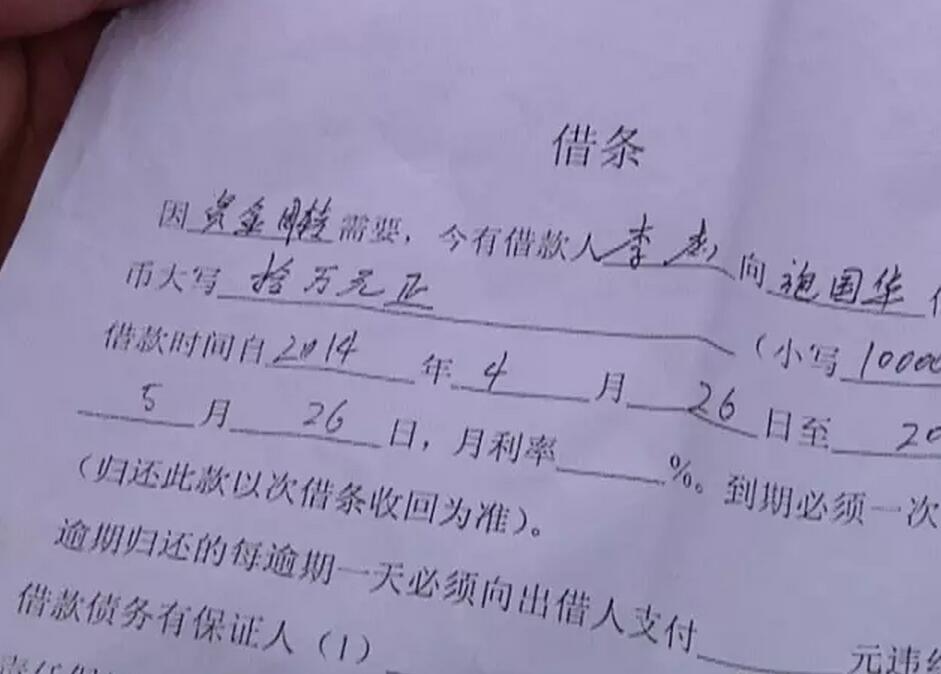 借条
因资金周转需要，今有借款人李杰向鲍国华
币大写拾万元正（小写10000
借款时间自2014年4月26日至20
5月26日，月利率%。到期必须一次
（归还此款以次借条收回为准）。
逾期归还的每逾期一天必须向出借人支付元违
借款债务有保证人（1）